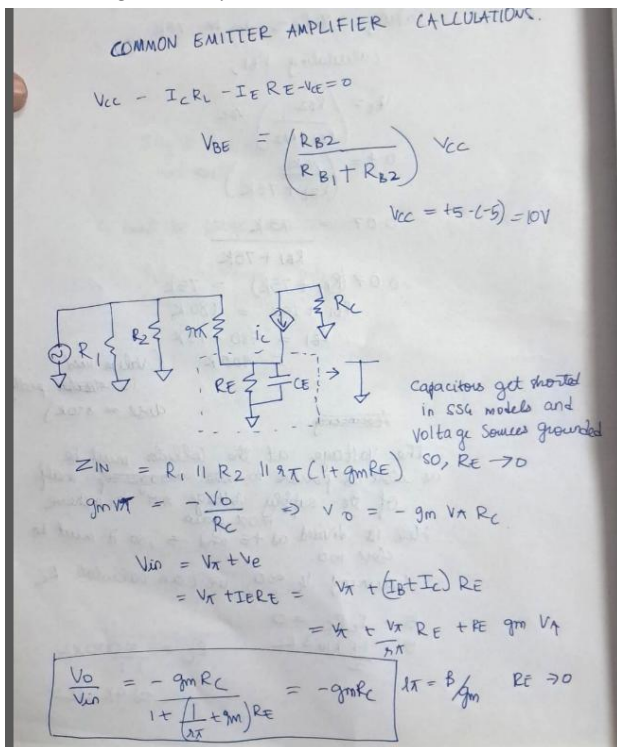 COMMON EMITTER AMPLIFIER CALCULATIONS.
Vcc - IcRL - IE RE - VCE = 0
VBE = (RB2 / (RB1 + RB2)) Vcc
Vcc = +5-(-5) = 10V
R1 R2 rπ ic Rc
RE CE
Capacitors get shorted
in SSG models and
Voltage Sources grounded
so, RE → 0
ZIN = R1 || R2 || rπ (1 + gmRE)
gm vπ = - Vo / Rc ⇒ Vo = - gm Vπ Rc.
Vin = Vπ + Ve
= Vπ + IERE = Vπ + (IB + Ic) RE
= Vπ + Vπ/rπ RE + RE gm Vπ
Vo / Vin = - gmRc / (1 + (1/rπ + gm) RE) = - gmRc
rπ = β/gm RE → 0